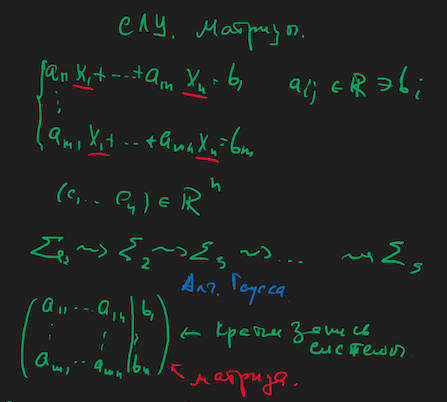 СЛУ. Матрицы.
a₁₁ x₁ + ... + a₁ₙ xₙ = b₁
a_{ij} ∈ ℝ ∋ b_i
⋮
a_{m1} x₁ + ... + a_{mn} xₙ = b_m
(c₁ ... cₙ) ∈ ℝⁿ
Σ₁ ⇝ Σ₂ ⇝ Σ₃ ⇝ ... ⇝ Σ_s
Алг. Гаусса
( a₁₁ ... a₁ₙ | b₁
⋮ ⋮ ⋮
a_{m1} ... a_{mn} | b_m )
← кратк запись
системы
← матрица.